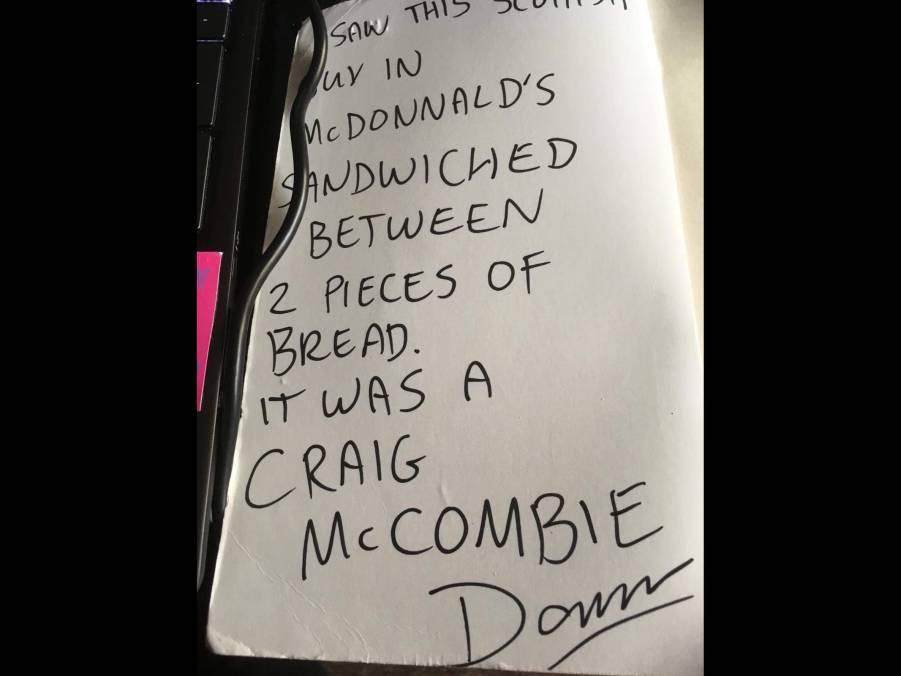 SAW THIS SCOTTISH
GUY IN
McDONNALD'S
SANDWICHED
BETWEEN
2 PIECES OF
BREAD.
IT WAS A
CRAIG
McCOMBIE